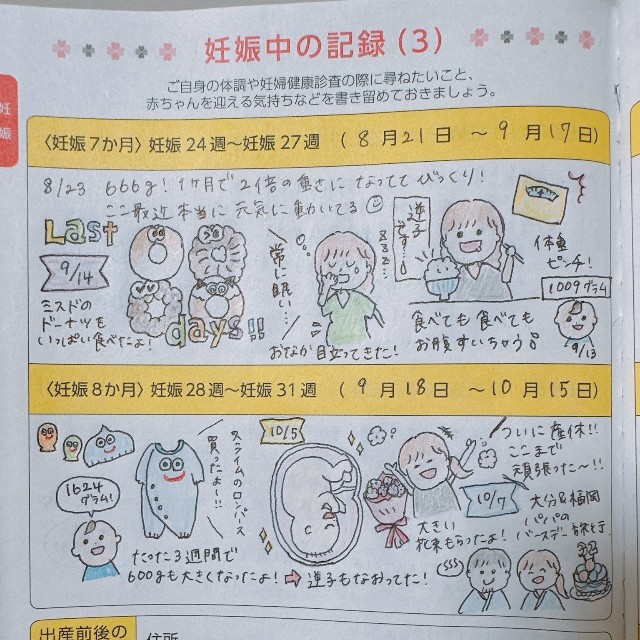 妊娠中の記録(3)
ご自身の体調や妊婦健康診査の際に尋ねたいこと、
赤ちゃんを迎える気持ちなどを書き留めておきましょう。
妊娠
〈妊娠7か月〉妊娠24週～妊娠27週 (8月21日 ～9月17日)
8/23 666g! 1ヶ月で2倍の重さになっててびっくり!
ここ最近本当に元気に動いてる
Last
100
days!!
9/14
ミスドの
ドーナツを
いっぱい食べたよ!
常に眠い…
zzz…
おなか目立ってきた!
逆子です…
体重
ピンチ!
1009グラム
9/13
食べても食べても
お腹すいちゃう
〈妊娠8か月〉妊娠28週～妊娠31週 (9月18日 ～10月15日)
スライムのロンパース
買ったよ〜!!
1624
グラム!
たった3週間で
600gも大きくなったよ!⇨逆子もなおってた!
10/5
ついに産休!!
ここまで
頑張った〜!!
大きい
花束もらったよ!
10/7
大分&福岡
パパの
バースデー旅行
出産前後の
住所